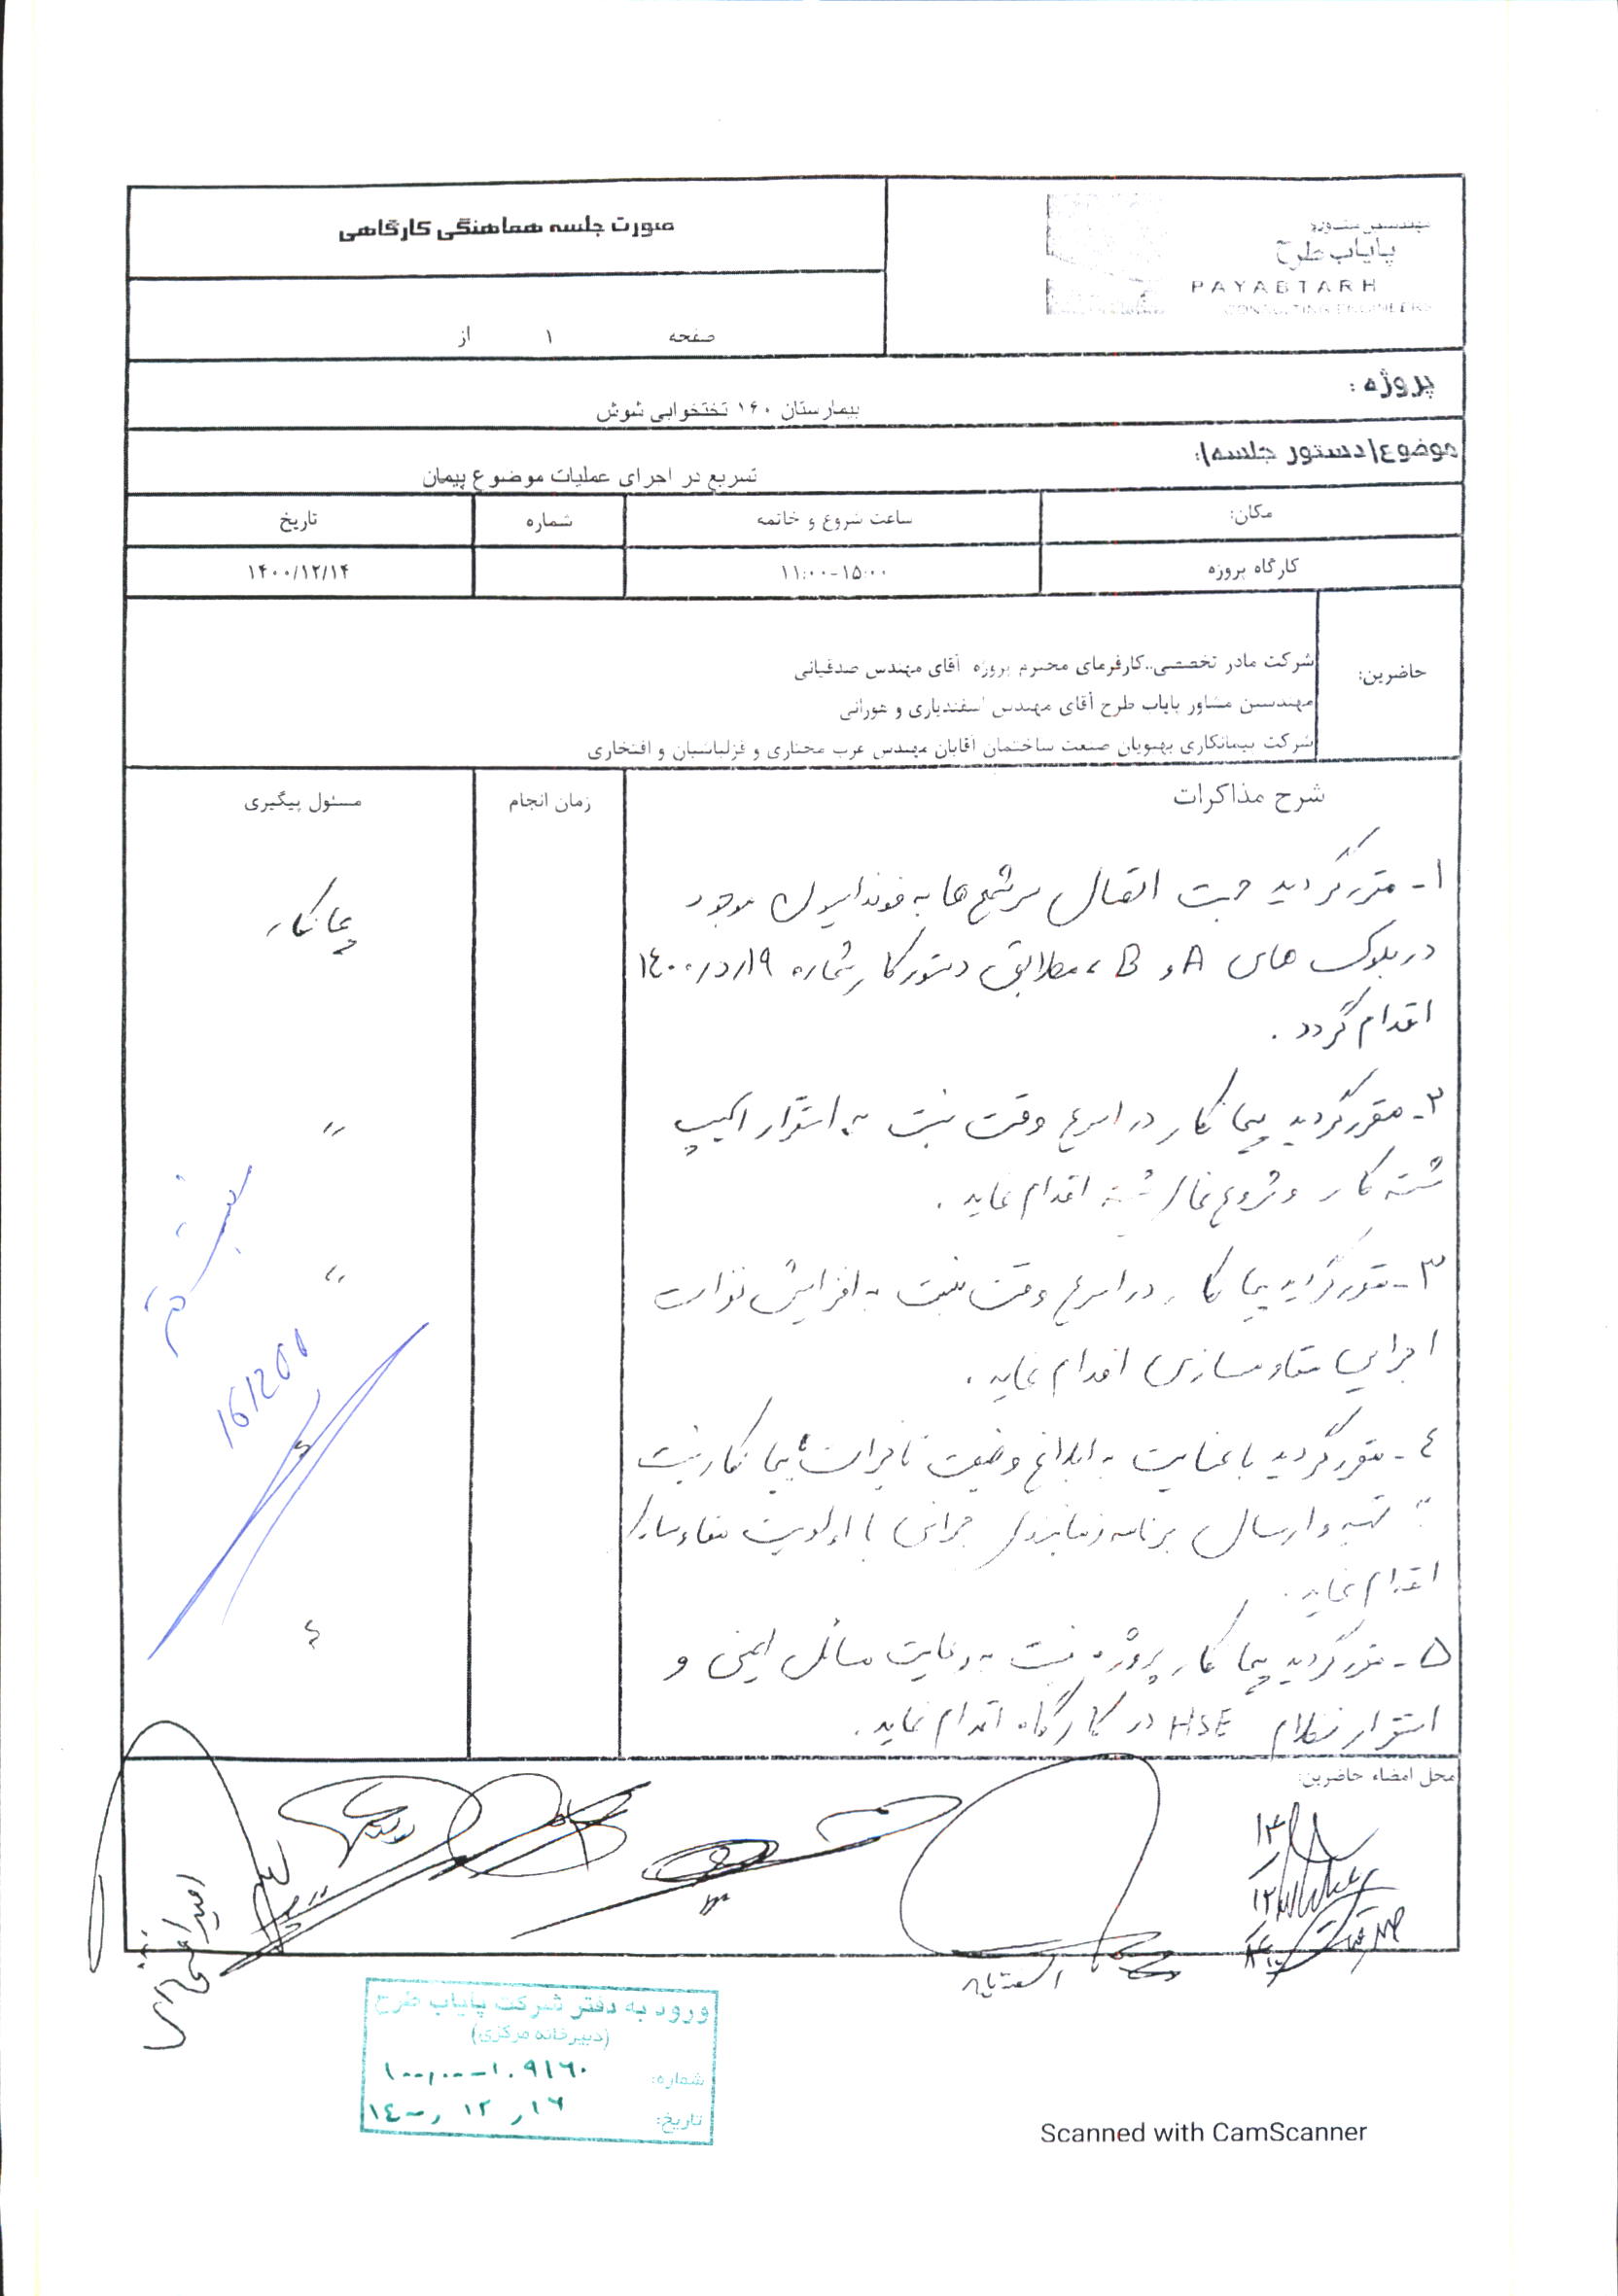 صورت جلسه هماهنگی کارگاهی
مهندسین مشاور
پایاب طرح
PAYABTARH
CONSULTING ENGINEERS
صفحه ۱ از
پروژه :
بیمارستان ۱۶۰ تختخوابی شوش
موضوع(دستور جلسه):
تسریع در اجرای عملیات موضوع پیمان
مکان: ساعت شروع و خاتمه شماره تاریخ
کارگاه پروژه ۱۱:۰۰-۱۵:۰۰ ۱۴۰۰/۱۲/۱۴
حاضرین:
شرکت مادر تخصصی..کارفرمای محترم پروژه آقای مهندس صدقیانی
مهندسین مشاور پایاب طرح آقای مهندس اسفندیاری و هورانی
شرکت پیمانکاری بهپویان صنعت ساختمان آقایان مهندس عرب مختاری و قزلباشیان و افتخاری
شرح مذاکرات زمان انجام مسئول پیگیری
۱- مقرر گردید جهت اتصال سرشمع ها به فونداسیون موجود
پیمانکار
در بلوک های A و B ، مطابق دستور کار شماره
اقدام گردد .
۲- مقرر گردید پیمانکار در اسرع وقت نسبت به استقرار اکیپ
"
اقدام نماید .
۳- مقرر گردید پیمانکار در اسرع وقت نسبت به افزایش نفرات
"
اجرایی مقاوم سازی اقدام نماید .
٤- مقرر گردید با عنایت به ابلاغ وضعیت تاخیرات پیمانکار نسبت
به تهیه و ارسال برنامه زمانبندی جبرانی با اولویت مقاوم سازی
اقدام نماید .
۵- مقرر گردید پیمانکار پروژه نسبت به رعایت مسائل ایمنی و
استقرار نظام HSE در کارگاه اقدام نماید .
محل امضاء حاضرین:
ورود به دفتر شرکت پایاب طرح
(دبیرخانه مرکزی)
شماره:
تاریخ: ۱۶ ر ۱۲ ر ۱٤۰۰
Scanned with CamScanner